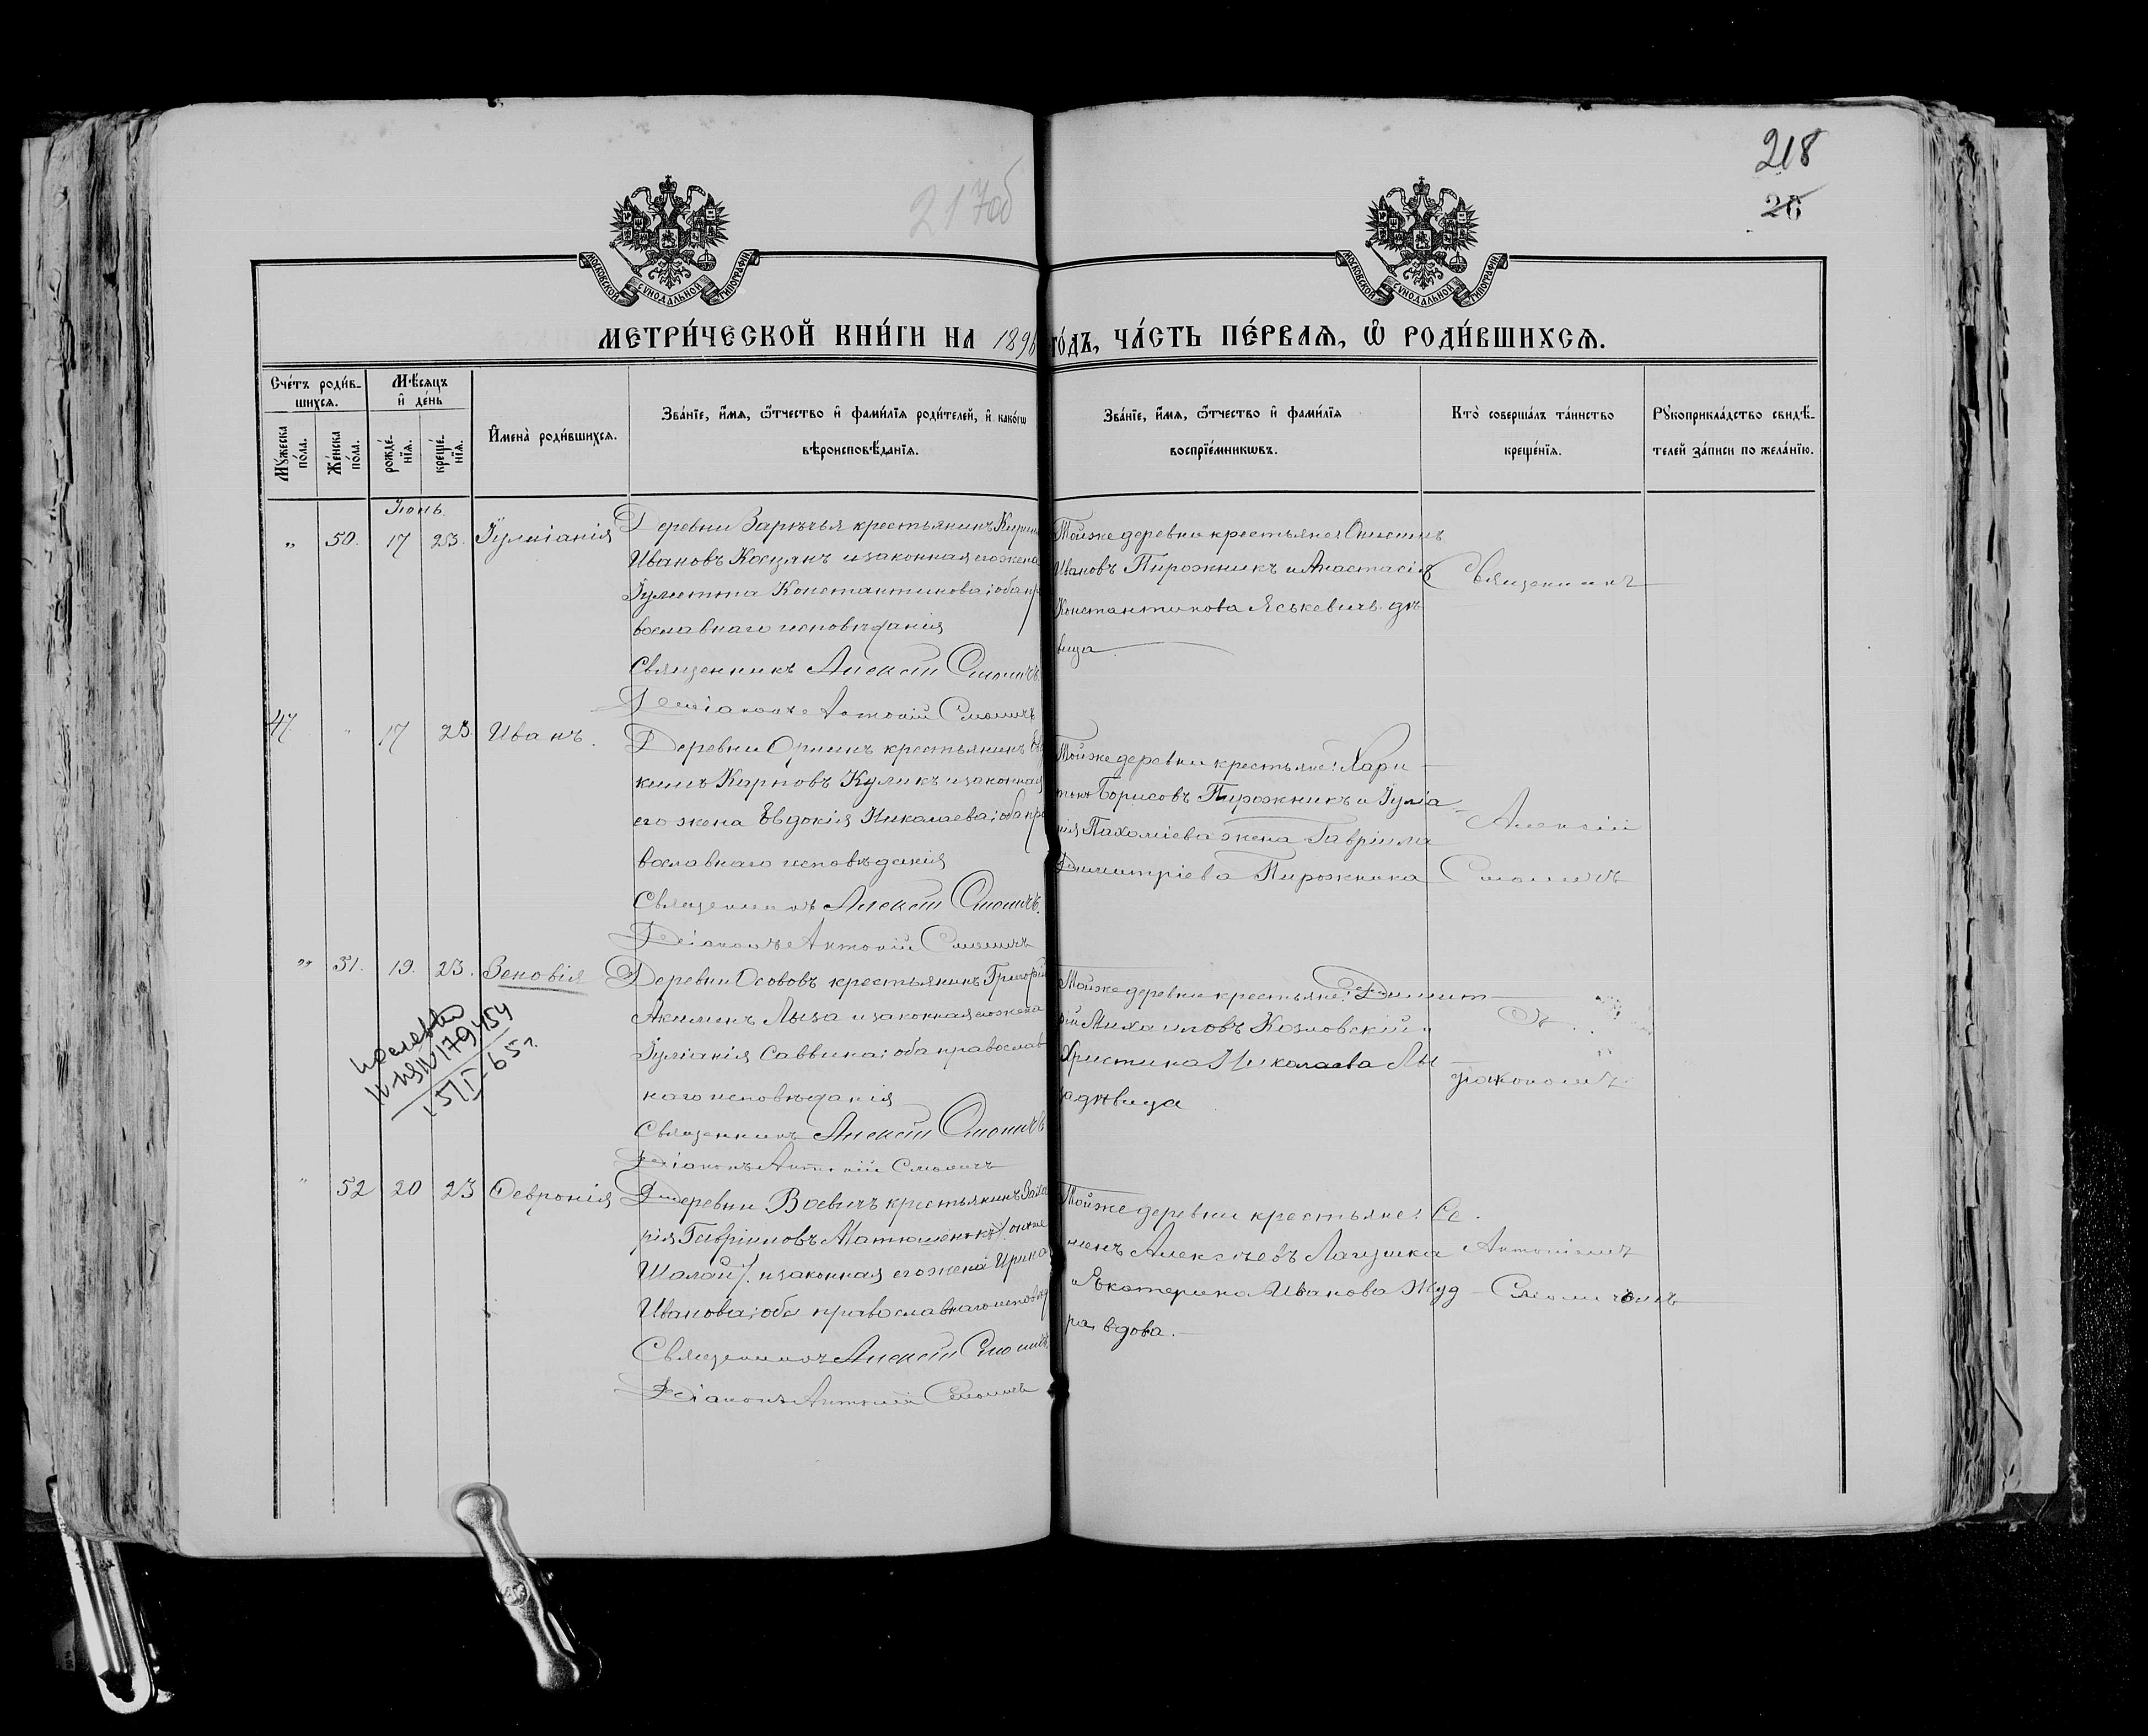 217об
218
26
МОСКОВСКОЙ СУНОДАЛЬНОЙ ТИПОГРАФІИ
МОСКОВСКОЙ СУНОДАЛЬНОЙ ТИПОГРАФІИ
МЕТРИ́ЧЕСКОЙ КНИ́ГИ НА 1896 ГО́ДЪ, ЧА́СТЬ ПЕ́РВАѦ, Ѡ҆ РОДИ́ВШИХСѦ.
Сче́тъ роди́в-
шихсѧ.
Мѣ́сяцъ
и҆ де́нь
Му́жеска
по́ла.
Же́нска
по́ла.
рожде́-
нїѧ.
креще́-
нїѧ.
И҆мена̀ роди́вшихсѧ.
Зва́нїе, и҆́мѧ, ѻ҆́тчество и҆ фами́лїѧ роди́телей, и҆ како́гѡ
вѣроисповѣ́данїѧ.
Зва́нїе, и҆́мѧ, ѻ҆́тчество и҆ фами́лїѧ
воспрїе́мникѡвъ.
Кто̀ соверша́лъ та́инство
креще́нїѧ.
Рꙋкоприкла́дство свидѣ́-
телей за́писи по жела́нїю.
Іюнь
„ 50. 17 23. Іуліанія
Деревни Зарѣчья крестьянинъ
Ивановъ и законная его жена
Іулитта Константинова; оба пра
вославнаго исповѣданія
Священникъ Алексій Смоличъ.
Діаконъ Антоній Смоличъ
Тойже деревни крестьяне:
Ивановъ Пирожникъ и Анастасія
Константинова Яськевичъ дѣ
вица
Священникъ
47. „ 17 23 Иванъ.
Деревни крестьянинъ
кимъ Карповъ Куликъ и законная
его жена Евдокія Николаева; оба пра
вославнаго исповѣданія
Священникъ Алексій Смоличъ.
Діаконъ Антоній Смоличъ
Тойже деревни крестьяне: Хари
тонъ Борисовъ Пирожникъ и Іуліа
нія Пахоміева жена Гавріила
Димитріева Пирожника
Алексій
Смоличъ
„ 51. 19. 23. Зеновія
Деревни Ососовъ крестьянинъ Григорій
Лыза и законная его жена
Іуліанія Саввина; оба православ
наго исповѣданія
Священникъ Алексій Смоличъ
Діаконъ Антоній Смоличъ
Тойже деревни крестьяне: Димит
рій Михаиловъ Козловскій и
Христина Николаева Лы
за дѣвица
съ
діакономъ
179454
„ 52 20 23 Февронія
Деревни Воевичъ крестьянинъ Заха
рія Гавріиловъ Матюшенокъ /:онже
Шалай:/ и законная его жена Ирина
Иванова; оба православнаго исповѣд
Священникъ Алексій Смоличъ
Діаконъ Антоній Смоличъ
Тойже деревни крестьяне: Се
менъ Алексѣевъ Лагушка
и Екатерина Иванова Жуд
ра, вдова.
Антоніемъ
Смоличемъ